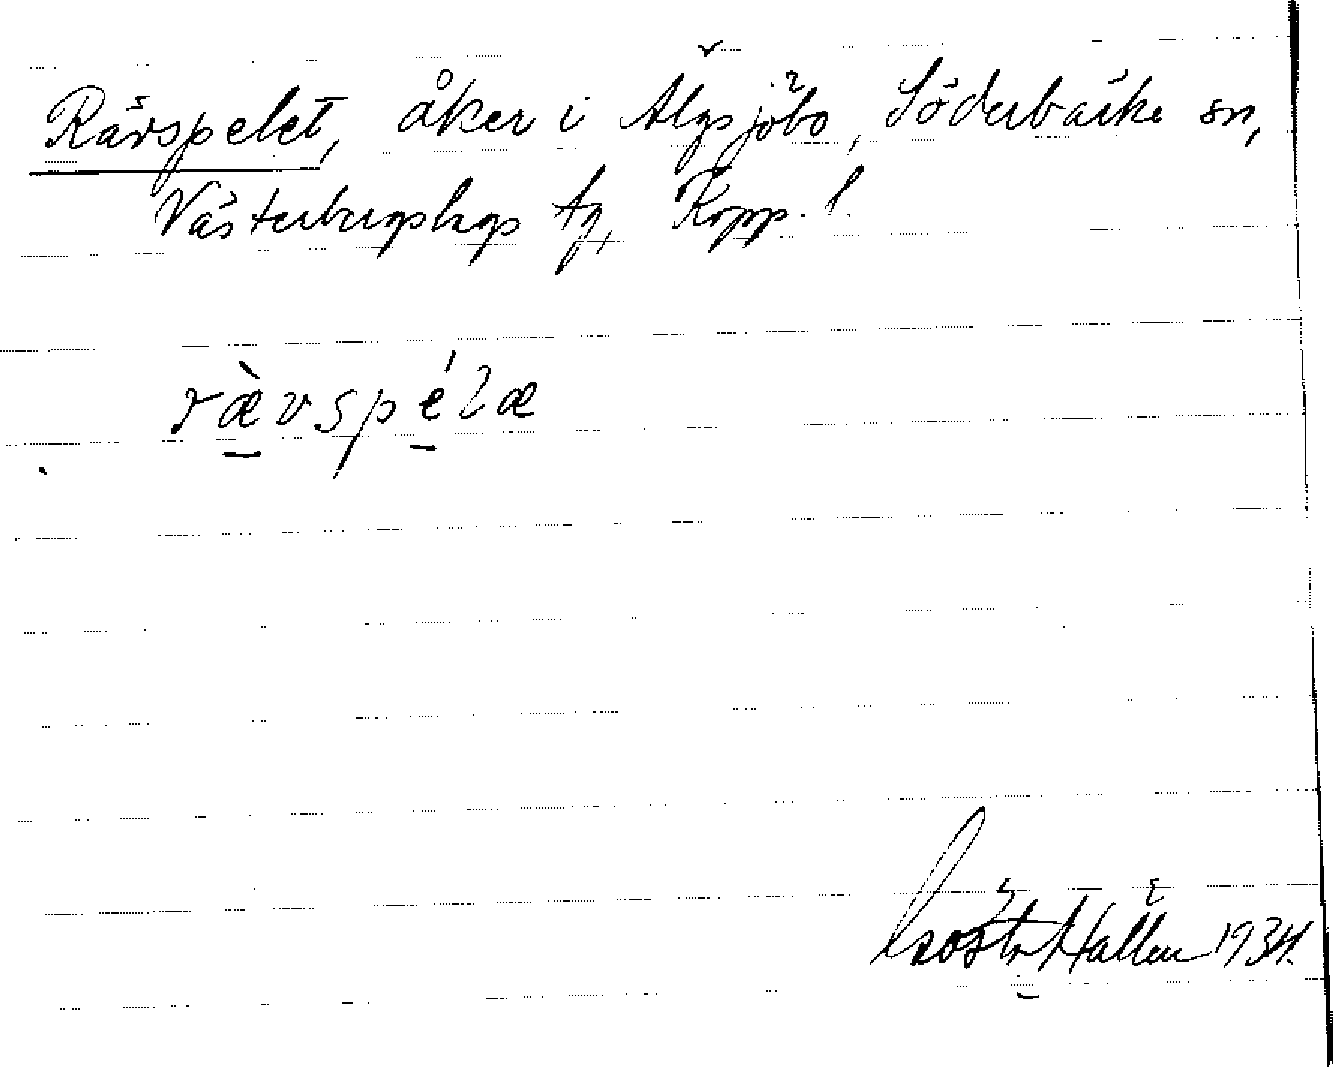 Rävspelet, åker i Älgsjöbo, Söderbärke sn,
Västerbergslags tg, Kopp. l.
ræ̀vspélæ
Gösta Hallén 1934.